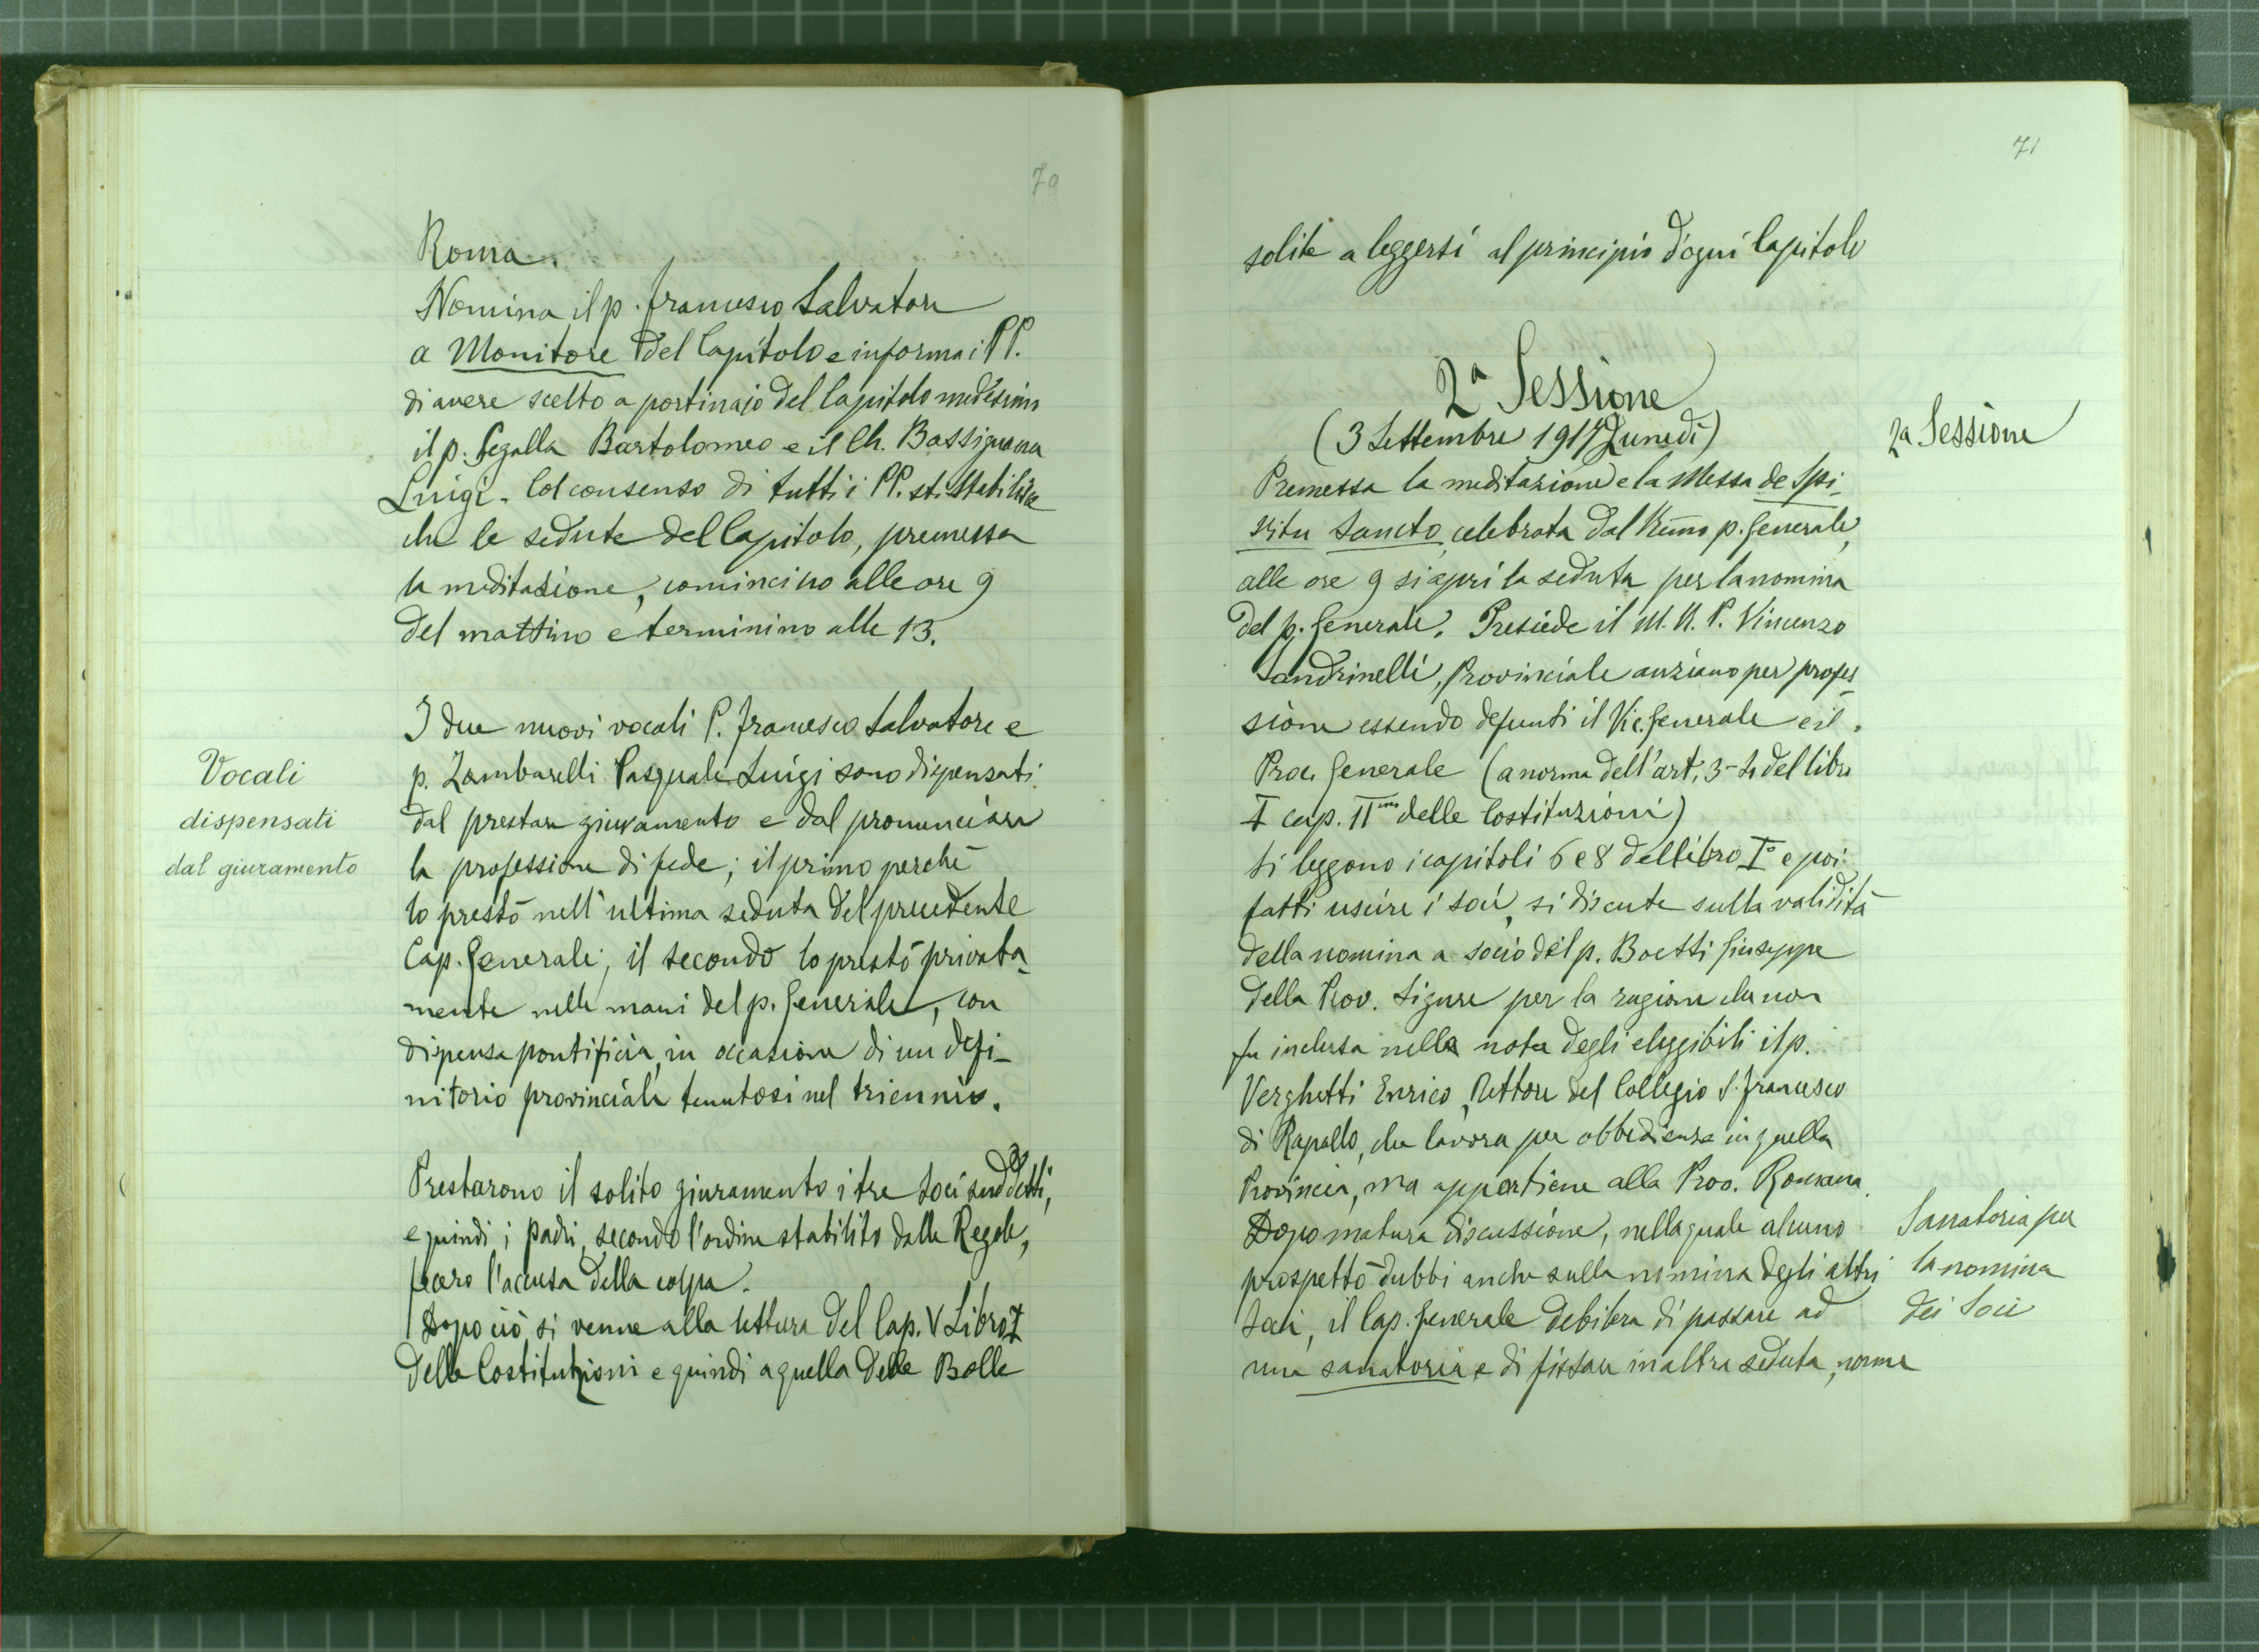 70
Roma.
Nomina il p. Francesco Salvatore
a Monitore del Capitolo e informa i PP.
di avere scelto a portinajo del Capitolo medesimo
il p. Segalla Bartolomeo e il Ch. Bassignana
Luigi. Col consenso di tutti i PP. si stabilisce
che le sedute del Capitolo, premessa
la meditazione, comincino alle ore 9
del mattino e terminino alle 13.
I due nuovi vocali P. Francesco Salvatore e
p. Zambarelli Pasquale Luigi sono dispensati
dal prestare giuramento e dal pronunciare
la professione di fede; il primo perchè
lo prestò nell'ultima seduta del precedente
Cap. Generale; il secondo lo prestò privata-
mente nelle mani del p. Generale, con
dispensa pontificia, in occasione di un defi-
nitorio provinciale tenutosi nel triennio.
Vocali
dispensati
dal giuramento
Prestarono il solito giuramento i tre Soci suddetti,
e quindi i padri, secondo l'ordine stabilito dalle Regole,
fecero l'accusa della colpa.
Dopo ciò si venne alla lettura del Cap. V Libro I
delle Costituzioni e quindi a quella delle Bolle
71
solite a leggersi al principio d'ogni Capitolo
2ª Sessione
(3 Settembre 1917 Lunedì)
2ª Sessione
Premessa la meditazione e la Messa de Spi-
ritu Sancto, celebrata dal Rmo p. Generale,
alle ore 9 si aprì la seduta per la nomina
del p. Generale. Presiede il M. R. P. Vincenzo
Sandrinelli, Provinciale anziano per profes-
sione essendo defunti il Vic. Generale e il
Proc. Generale (a norma dell'art. 3- del libro
I cap. II delle Costituzioni)
Si leggono i capitoli 6 e 8 del libro I° e poi
fatti uscire i soci, si discute sulla validità
della nomina a socio del p. Boetti Giuseppe
della Prov. Ligure per la ragione che non
fu inclusa nella nota degli eleggibili il p.
Verghetti Enrico, Rettore del Collegio S. Francesco
di Rapallo, che lavora per obbedienza in quella
Provincia, ma appartiene alla Prov. Romana.
Dopo matura discussione, nella quale alcuno
prospettò dubbi anche sulla nomina degli altri
Soci, il Cap. Generale delibera di passare ad
una sanatoria e di fissare in altra seduta, norme
Sanatoria per
la nomina
dei Soci